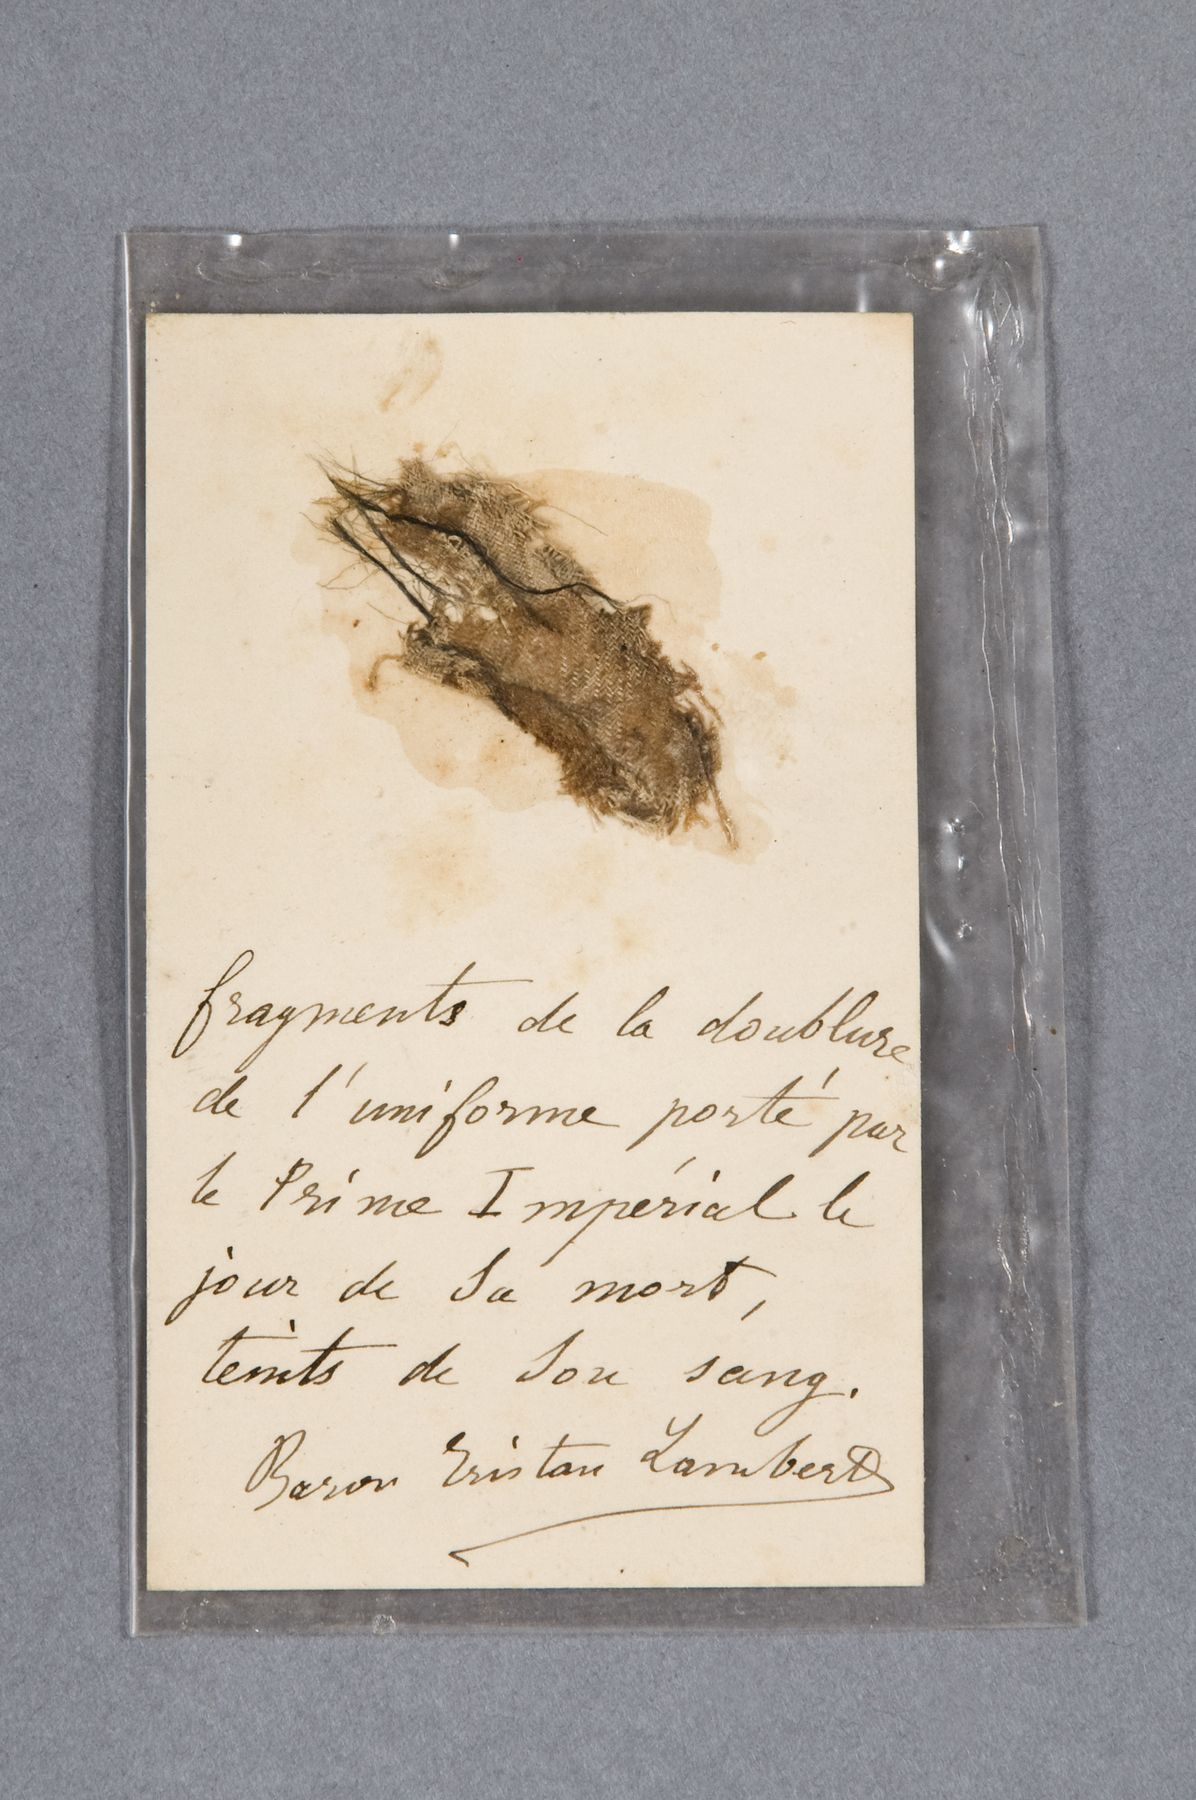 fragments de la doublure
de l'uniforme porté par
le Prince Impérial le
jour de Sa mort,
teints de Son sang.
Baron Tristan Lambert